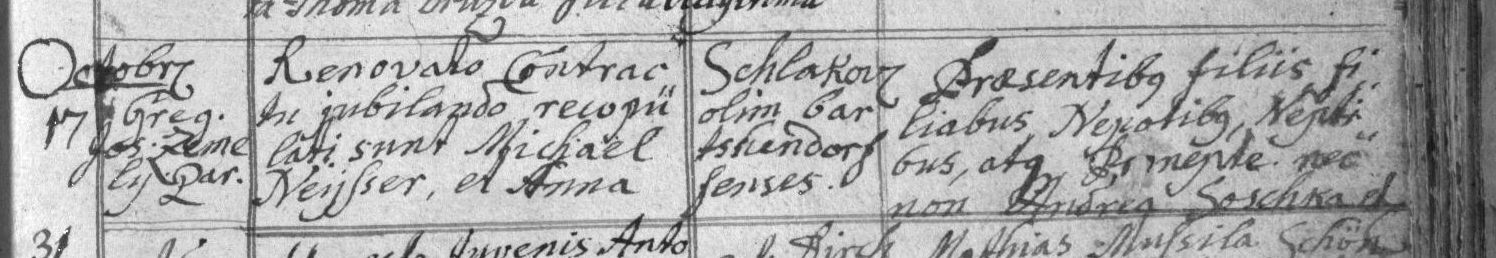 ta Thoma
Octobr
17 Greg.
Jos. Zeme
ly Par.
Renovato Contrac
tu jubilando recopu
lati sunt Michaël
Neÿsser, et Anna
Schlakov
olim bar
tshendorf
senses.
Præsentibq filiis, fi
liabus, Nepotibq, Nepti
bus, atq nec
non Andrea Soschka et
31 Juvenis Anto
Kirch
Mathias Mussila Schön